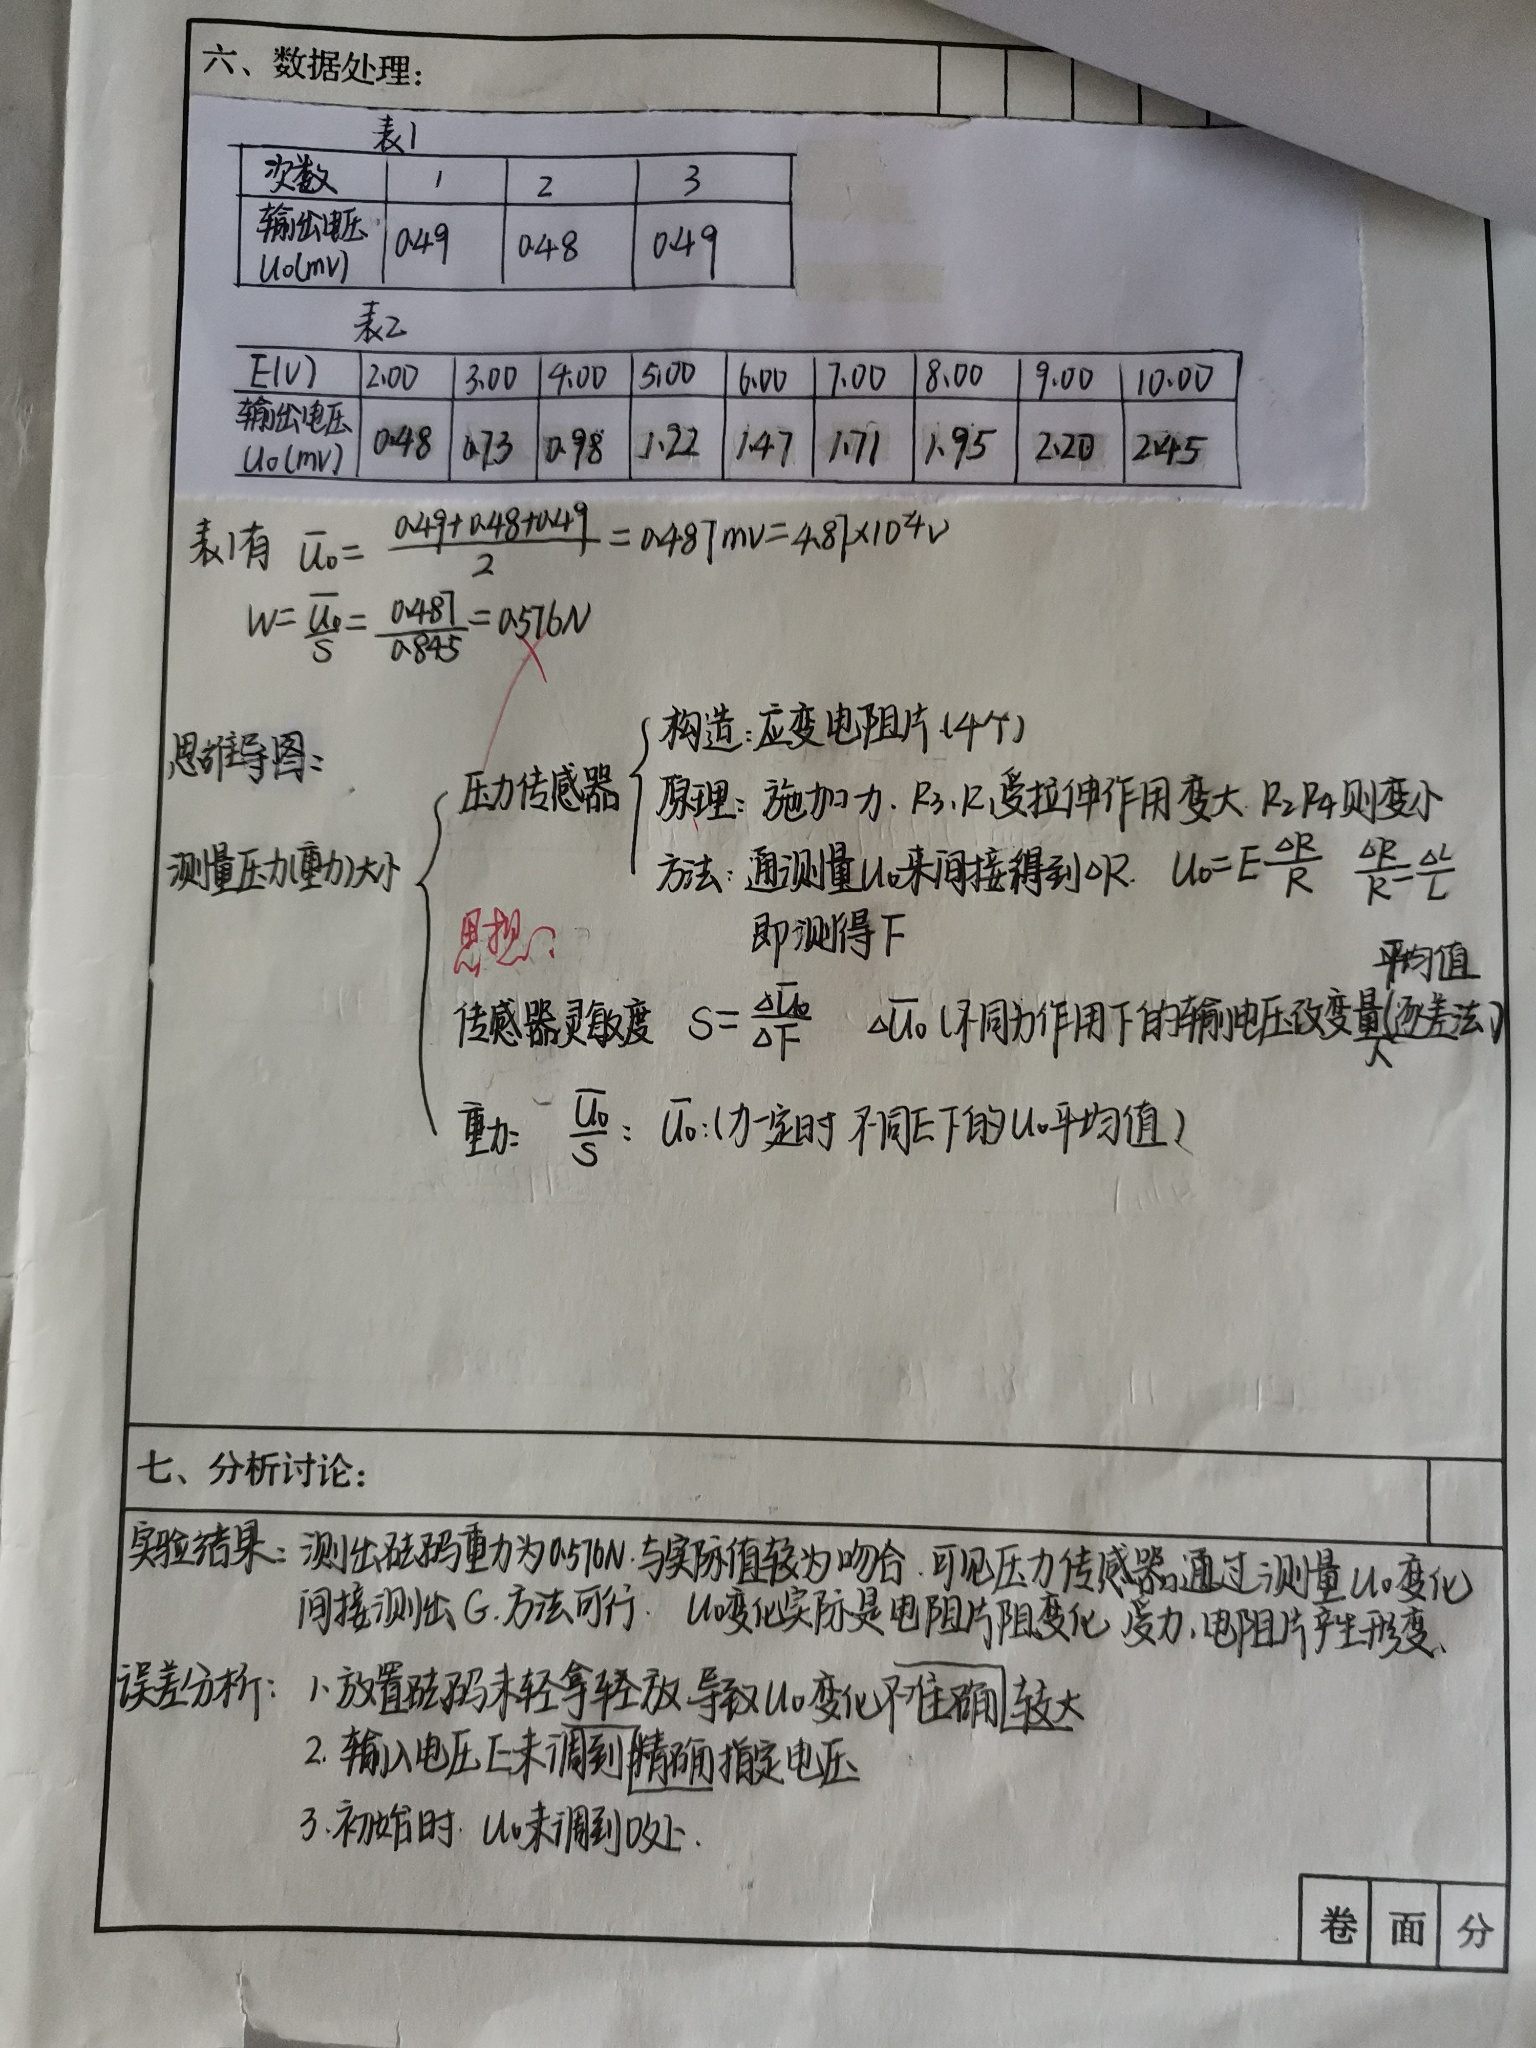 六、数据处理:
表1
次数 1 2 3
输出电压U₀(mv) 0.49 0.48 0.49
表2
E(V) 2.00 3.00 4.00 5.00 6.00 7.00 8.00 9.00 10.00
输出电压U₀(mv) 0.48 0.73 0.98 1.22 1.47 1.71 1.95 2.20 2.45
表1有 Ū₀= (0.49+0.48+0.49)/2 =0.487mv=4.87×10⁻⁴v
W= Ū₀/S = 0.487/0.845 =0.576N
思维导图:
测量压力(重力)大小
压力传感器
构造:应变电阻片(4个)
原理:施加力.R₃、R₁受拉伸作用变大.R₂R₄则变小
方法:通测量U₀来间接得到ΔR. U₀=E ΔR/R ΔR/R=ΔL/L
即测得F
思想
平均值
传感器灵敏度 S=ΔŪ₀/ΔF ΔŪ₀(不同力作用下的输电压改变量(逐差法)
重力: Ū₀/S: Ū₀:(力一定时 不同E下的U₀平均值)
七、分析讨论:
实验结果:测出砝码重力为0.576N.与实际值较为吻合.可见压力传感器通过测量U₀变化
间接测出G.方法可行. U₀变化实际是电阻片阻变化 受力,电阻片产生形变、
误差分析: 1.放置砝码未轻拿轻放.导致U₀变化不准确较大
2.输入电压E未调到精确指定电压
3.初始时.U₀未调到0处.
卷面分